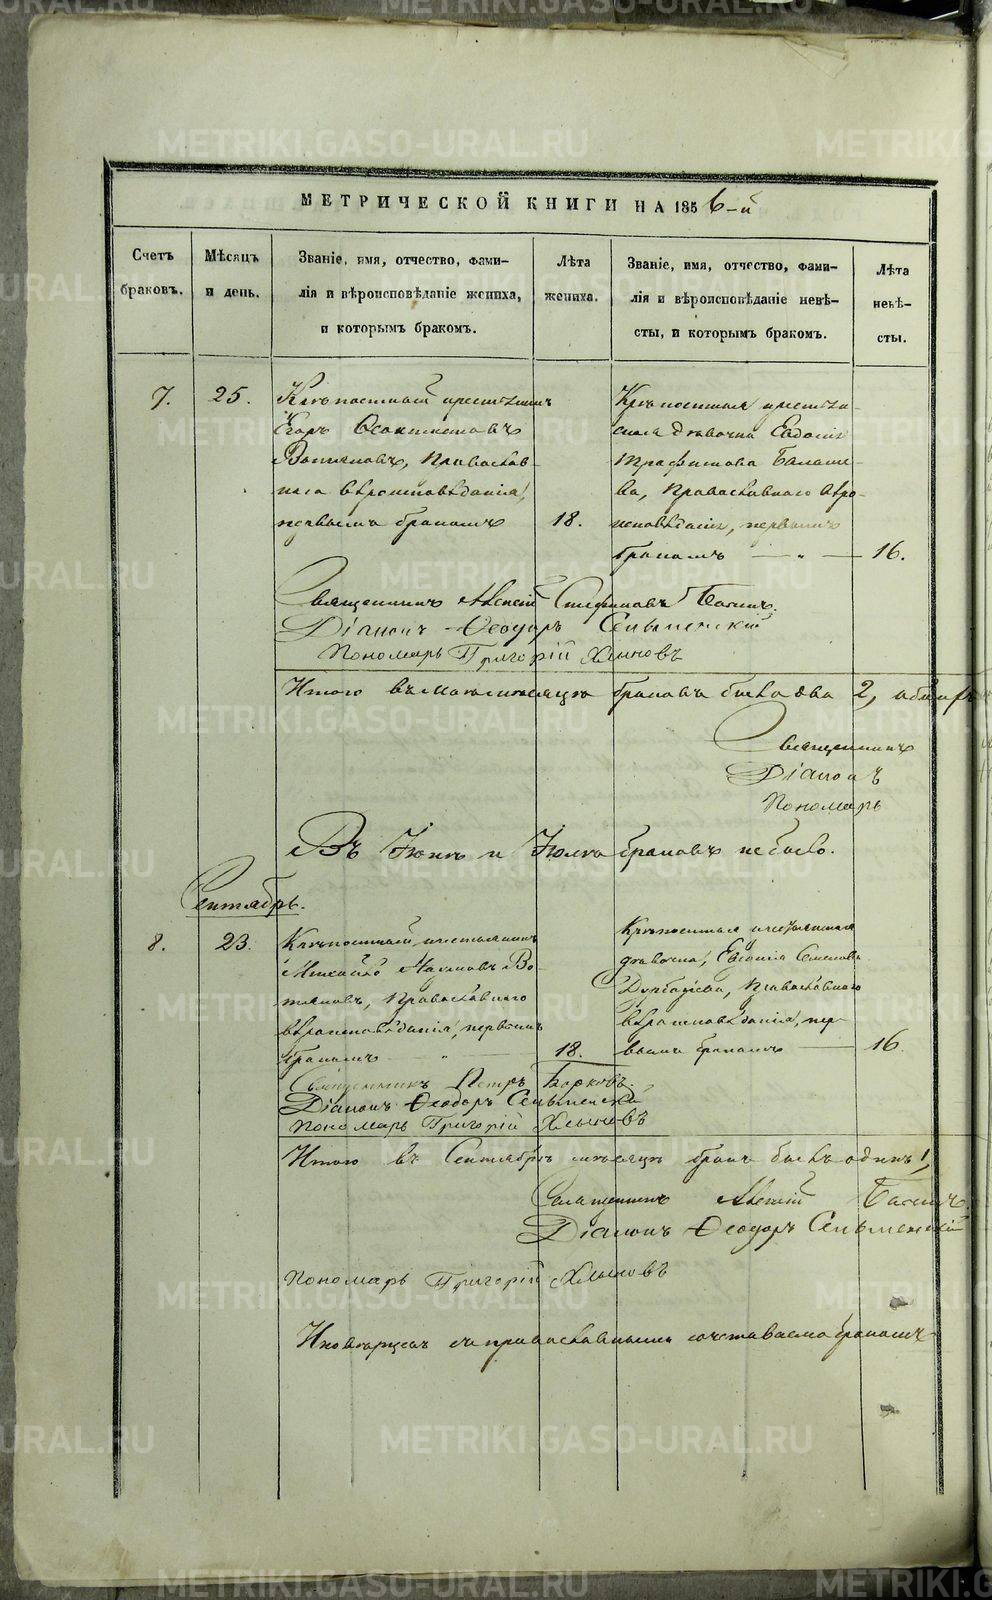 МЕТРИЧЕСКОЙ КНИГИ НА 1856-й
Счетъ браковъ.
Мѣсяцъ и день.
Званіе, имя, отчество, фами-
лія и вѣроисповѣданіе жениха,
и которымъ бракомъ.
Лѣта жениха.
Званіе, имя, отчество, фами-
лія и вѣроисповѣданіе невѣ-
сты, и которымъ бракомъ.
Лѣта невѣ-
сты.
7.
25.
Крѣпостный крестьянинъ
Егоръ
Православ-
наго вѣроисповѣданія,
первымъ бракомъ
18.
Крѣпостная крестьян-
ская дѣвочка Евдокія
Трофимова
ва, Православнаго вѣро-
исповѣданія, первымъ
бракомъ — „ —
16.
Священникъ Алексій Стефановъ
Діаконъ Ѳеодоръ Сельменскій
Пономарь Григорій Хлыновъ
Итого въ маѣ мѣсяцѣ браковъ было два 2,
Священникъ
Діаконъ
Пономарь
Въ Іюнѣ и Іюлѣ браковъ не было.
Сентябрь.
8.
23.
Крѣпостный крестьянинъ
Михайло Наумовъ Во-
тяковъ, Православнаго
вѣроисповѣданія, первымъ
бракомъ — „ —
18.
Крѣпостная крестьянская
дѣвочка, Евдокія Семенова
Православнаго
вѣроисповѣданія, пер-
вымъ бракомъ —
16.
Священникъ Петръ Борковъ.
Діаконъ Ѳеодоръ Сельменскій
Пономарь Григорій Хлыновъ
Итого въ Сентябрѣ мѣсяцѣ бракъ былъ одинъ 1,
Священникъ Алексій
Діаконъ Ѳеодоръ Сельменскій
Пономарь Григорій Хлыновъ
Иновѣрцевъ съ православными сочетаваемо бракомъ
METRIKI.GASO-URAL.RU